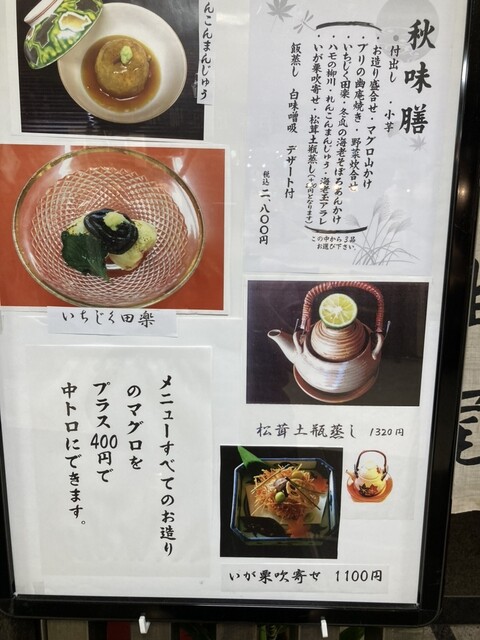 秋味膳
・付出し ・小芋
・お造り盛合せ・マグロ山かけ
・ブリの幽庵焼き・野菜炊合せ
・いちじく田楽・冬瓜の海老そぼろあんかけ
・ハモの柳川・れんこんまんじゅう・海老玉アラレ
・いが栗吹寄せ・松茸土瓶蒸し
飯蒸し 白味噌吸 デザート付
税込 二、八〇〇円
この中から3品
お選び下さい
んこんまんじゅう
いちじく田楽
メニューすべてのお造り
のマグロを
プラス400円で
中トロにできます。
松茸土瓶蒸し 1320円
いが栗吹寄せ 1100円